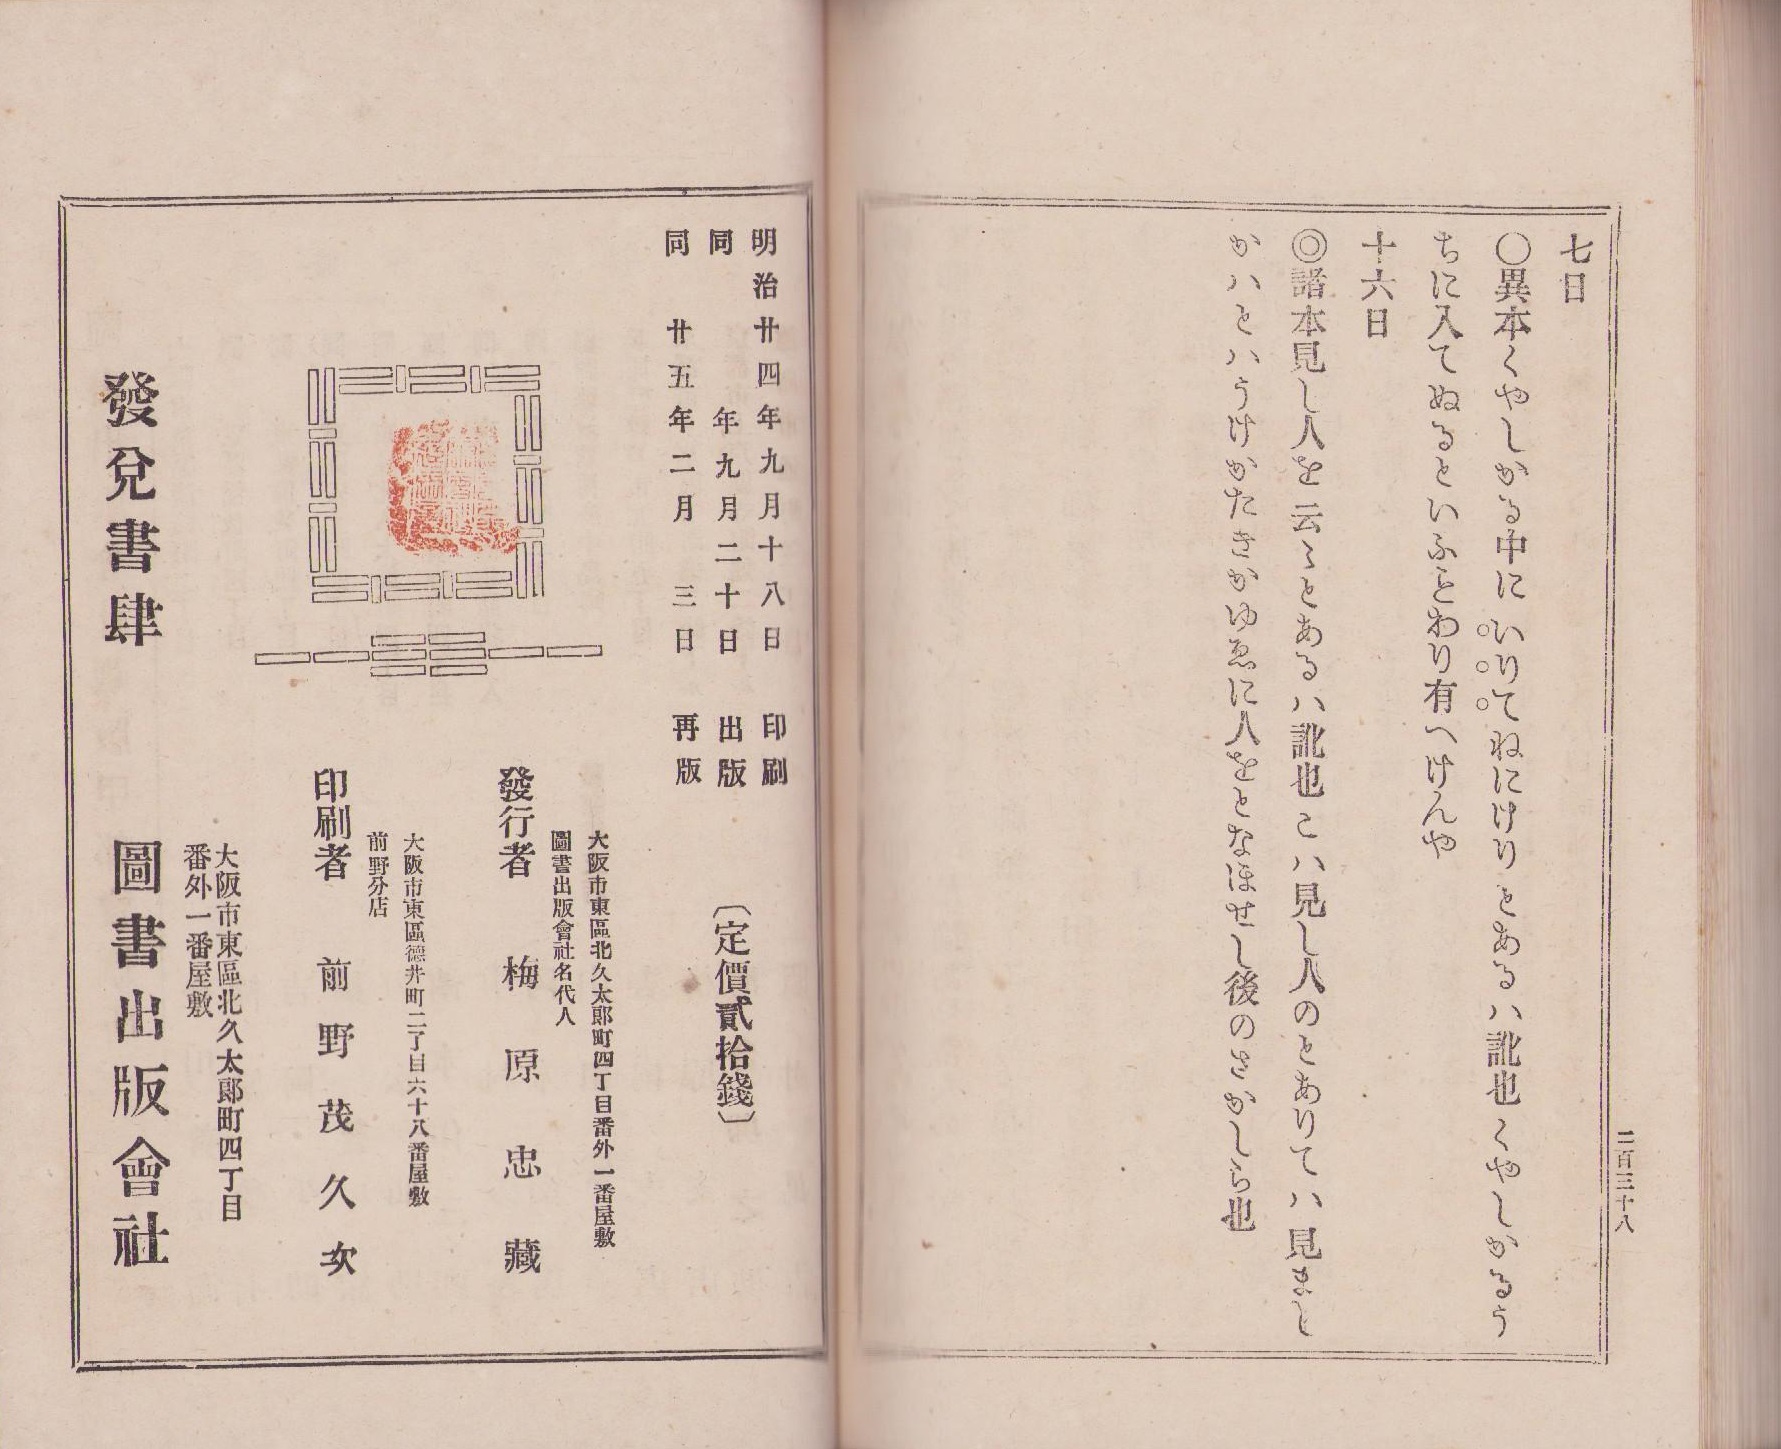 七日
○異本くやしかる中にいりてねにけりとあるハ訛也くやしかるう
ちに入てぬるといふことわり有へけんや
十六日
◎諸本見し人を云〻とあるハ訛也こハ見し人のとありてハ見まし
かハとハうけかたきかゆゑに人をとなほせし後のさかしら也
二百三十八
明治廿四年九月十八日 印刷
同 年九月二十日 出版
同 廿五年二月 三日 再版
〔定價貳拾錢〕
大阪市東區北久太郎町四丁目番外一番屋敷
圖書出版會社名代人
發行者 梅原忠藏
大阪市東區德井町二丁目六十八番屋敷
前野分店
印刷者 前野茂久次
大阪市東區北久太郎町四丁目
番外一番屋敷
發兌書肆 圖書出版會社